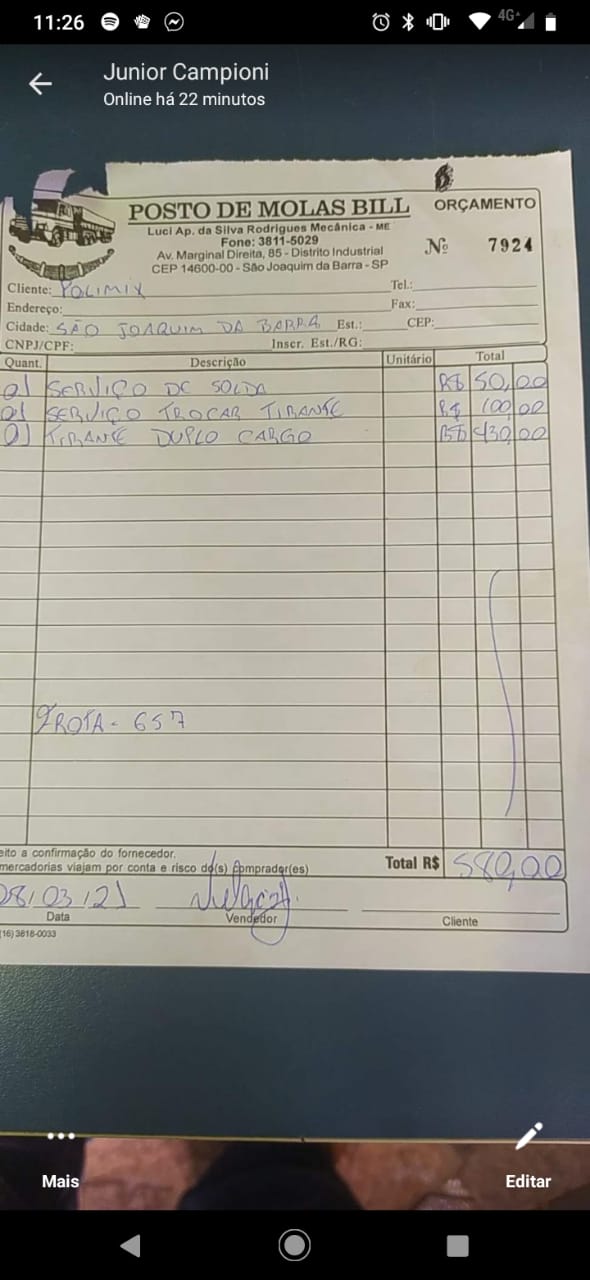 11:26
4G
Junior Campioni
Online há 22 minutos
POSTO DE MOLAS BILL
ORÇAMENTO
Luci Ap. da Silva Rodrigues Mecânica - ME
Fone: 3811-5029
Nº 7924
Av. Marginal Direita, 85 - Distrito Industrial
CEP 14600-00 - São Joaquim da Barra - SP
Cliente: POLIMIX Tel.:
Endereço: Fax:
Cidade: SÃO JOAQUIM DA BARRA Est.: CEP:
CNPJ/CPF: Inscr. Est./RG:
Quant. Descrição Unitário Total
01 SERVIÇO DE SOLDA R$ 50,00
01 SERVIÇO TROCAR TIRANTE R$ 100,00
01 TIRANTE DUPLO CARGO R$ 430,00
FROTA - 657
eito a confirmação do fornecedor.
mercadorias viajam por conta e risco do(s) comprador(es)
Total R$ 580,00
08/03/21
Data Vendedor Cliente
(16) 3818-0033
Mais Editar